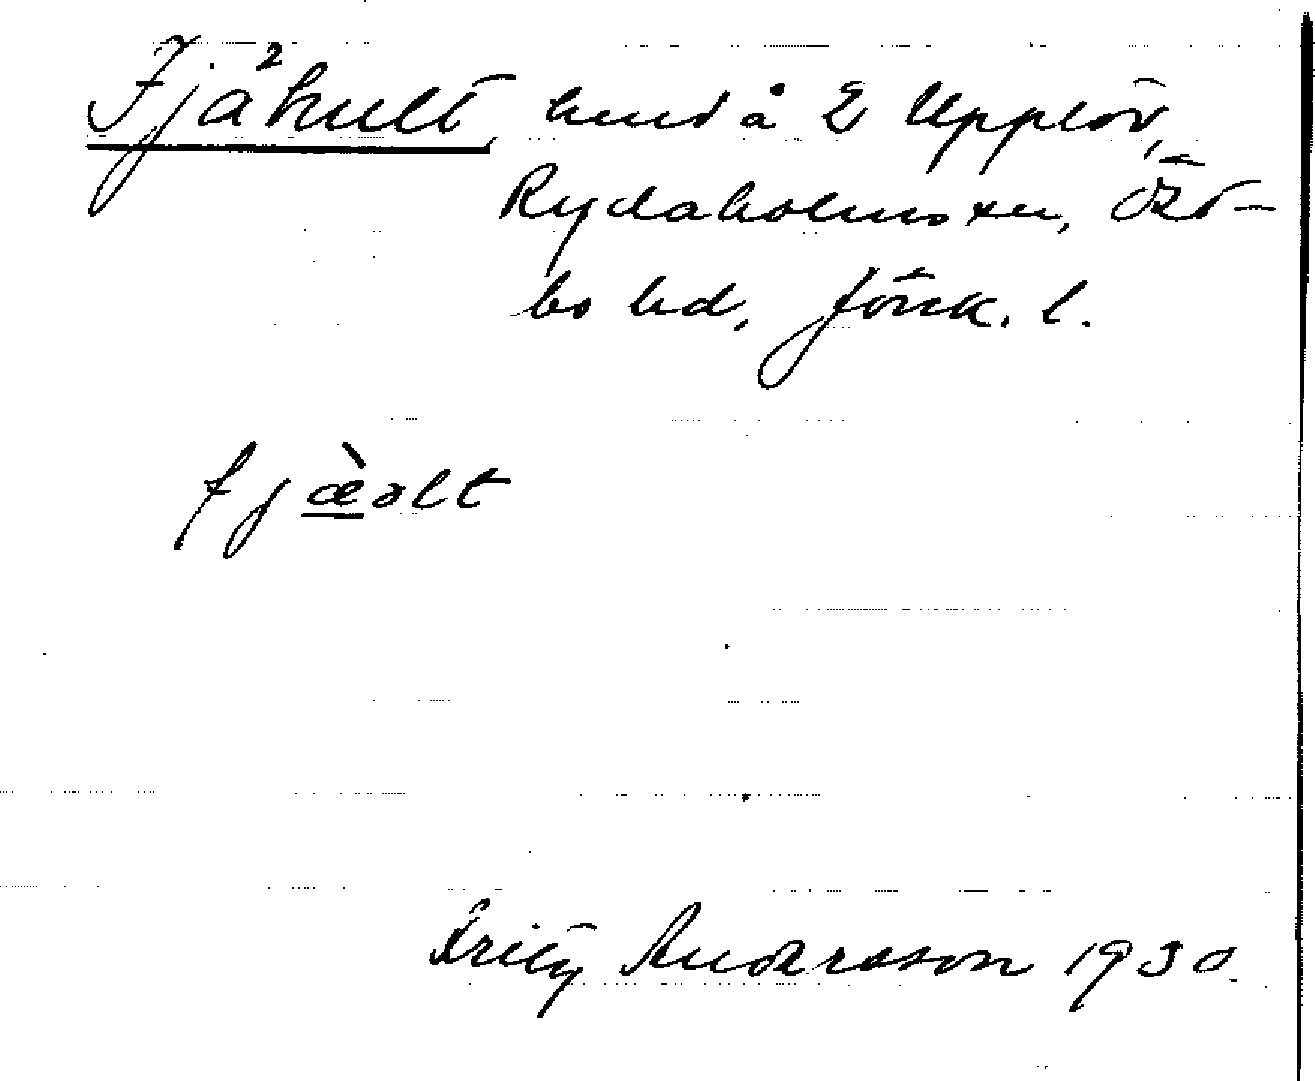 Fjåhult, hmd å 2 Upplöv,
Rydaholms sn, Öst-
bo hd, Jönk. l.
fjæ̀ɑlt
Fritz Andersson 1930.